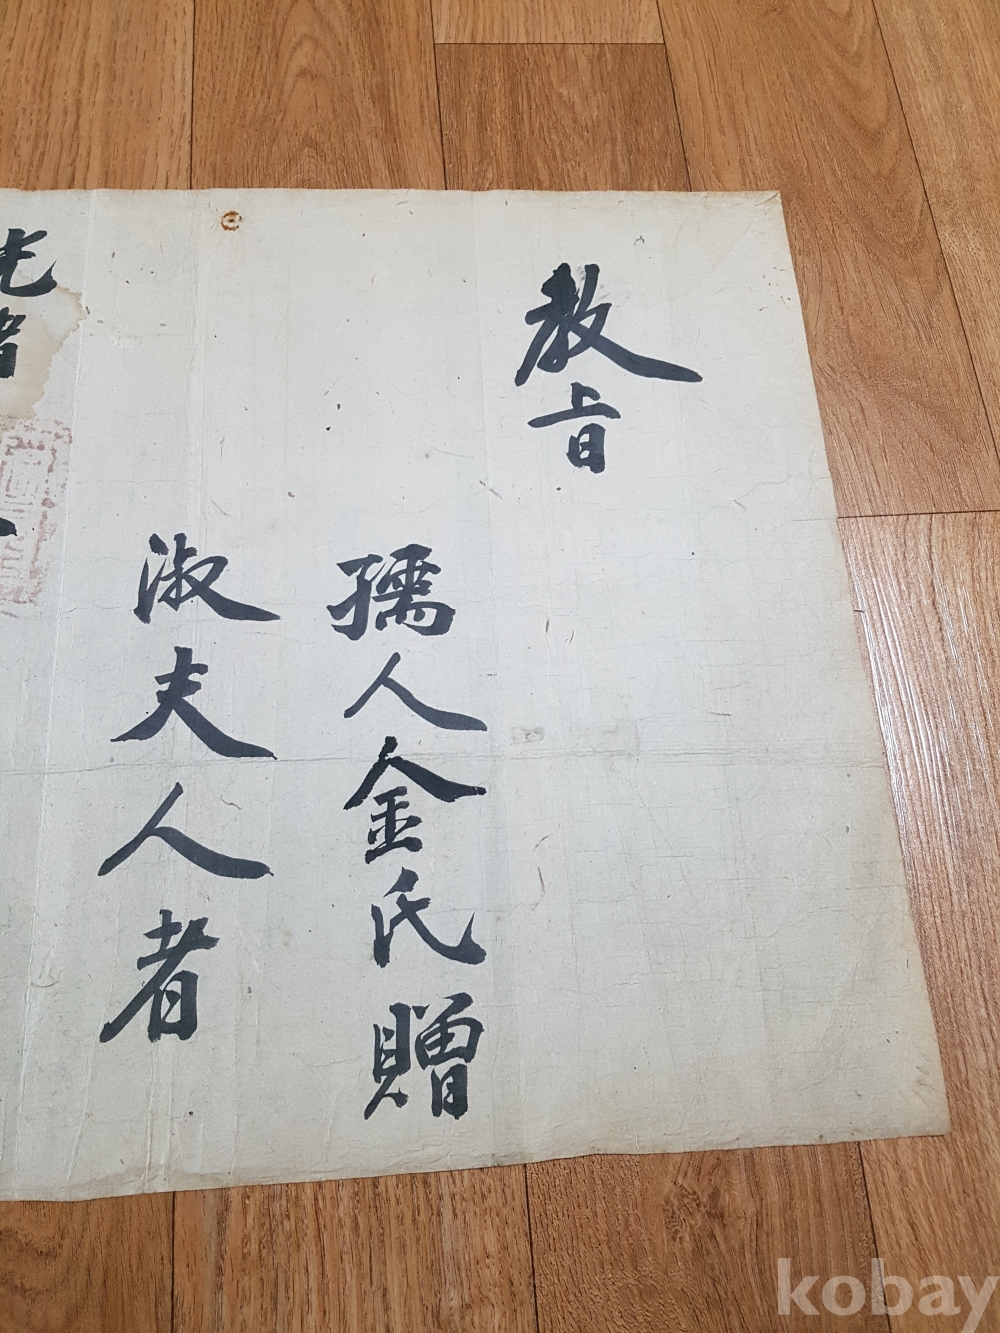 教旨
孺人金氏贈
淑夫人者
光緖
kobay